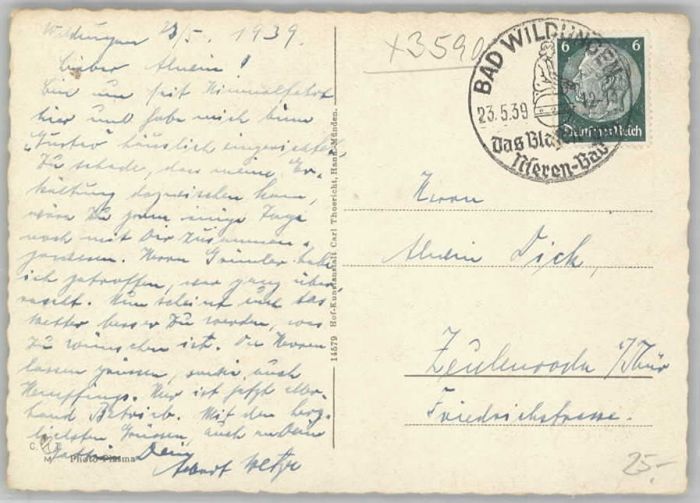 Wildungen 23/5. 1939.
Lieber Alwin!
Bin nun seit Himmelfahrt
hier und habe mich beim
"Gustav" häuslich eingerichtet
Zu schade, dass meine Er-
kältung dazwischen kam,
wäre Zu gern einige Tage
noch mit Dir Zusammen
gewesen. Herrn habe
ich getroffen, war ganz über-
rascht. Nun scheint auch das
Wetter besser Zu werden, was
Zu wünschen ist. Die Herren
lassen grüssen, auch
Hier ist jetzt aller-
hand Betrieb. Mit den herz-
lichsten Grüssen, auch
Dein
14579 Hof-Kunstanstalt Carl Thoericht, Hann. Münden.
C. T.
M.
Photo
x3590
BAD WILDUNGEN
23.5.39 -12
Das Bla
Nieren-Bad
6 6
Deutsches Reich
Herrn
Alwin Dick,
Zeulenroda i/Thür
Friedrichstrasse.
25.-